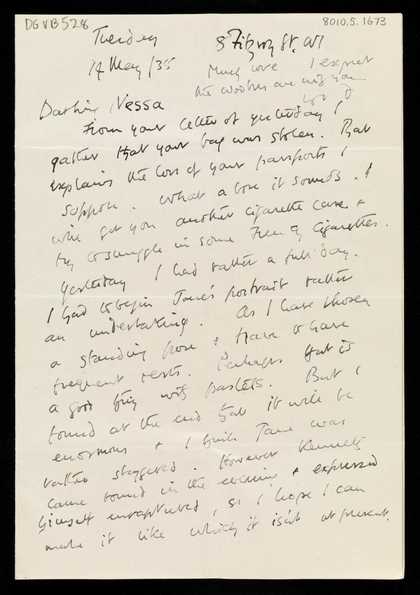 DGVB528
8010.5.1673
Tuesday
14 May/35
8 Fitzroy St. W1
Much love I expect
the Woolves are with you
Darling Nessa
From your letter of yesterday I
gather that your bag was stolen. That
explains the loss of your passports I
suppose. What a bore it sounds. I
will get you another cigarette case &
try to smuggle in some French cigarettes.
Yesterday I had rather a full day.
I had to begin Jane's portrait rather
an undertaking. As I have chosen
a standing pose & have to have
frequent rests. Perhaps that is
a good thing with pastels. But I
found at the end that it will be
enormous & I think Jane was
rather staggered. However Kenneth
came round in the evening & expressed
himself enraptured, so I hope I can
make it like which it isn't at present.